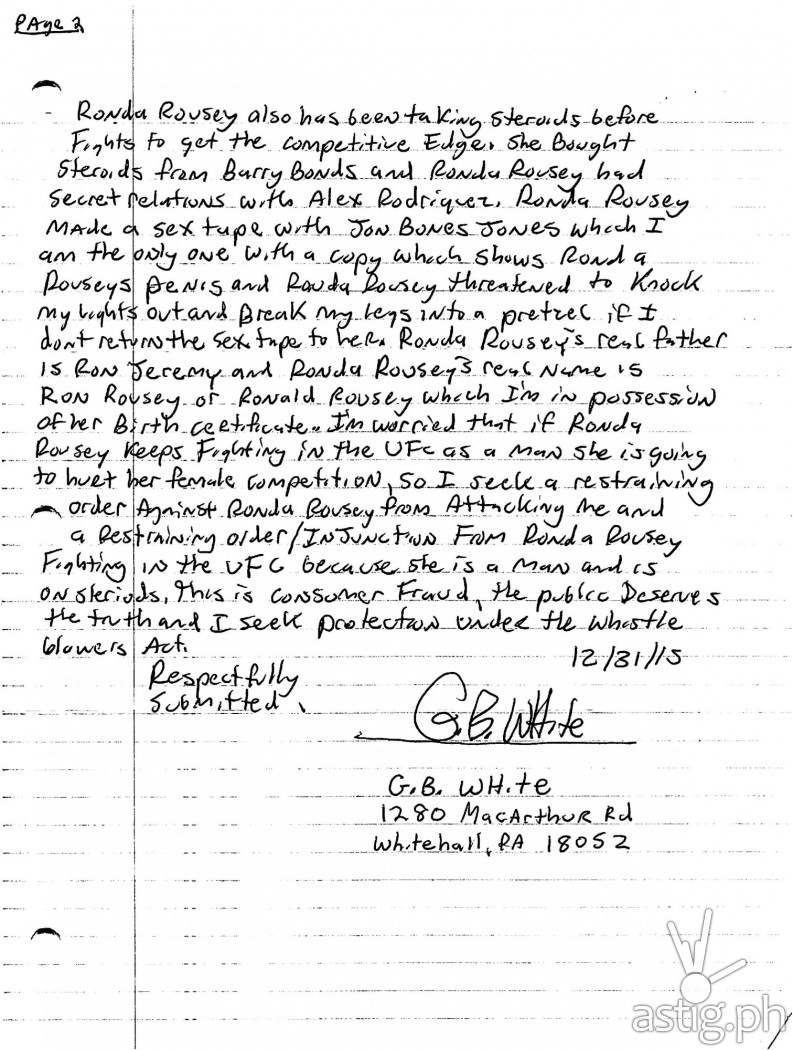 PAge 2
- Ronda Rousey also has been taking steroids before
Fights to get the competitive Edge. She Bought
Steroids from Barry Bonds and Ronda Rousey had
Secret relations with Alex Rodriquez. Ronda Rousey
Made a sex tape with Jon Bones Jones which I
am the only one with a copy which shows Ronda
Rouseys penis and Ronda Rousey threatened to Knock
my lights out and Break my legs into a pretzel if I
dont return the sex tape to her. Ronda Rousey's real father
is Ron Jeremy and Ronda Rousey's real Name is
Ron Rousey or Ronald Rousey which I'm in possession
of her Birth certificate. I'm worried that if Ronda
Rousey Keeps Fighting in the UFC as a man she is going
to hurt her female competition, so I seek a restraining
order Against Ronda Rousey from Attacking me and
a Restraining order/Injunction From Ronda Rousey
Fighting in the UFC because she is a Man and is
on steriods, this is consumer Fraud, the public Deserves
the truth and I seek protection under the whistle
blowers Act.
12/31/15
Respectfully
Submitted,
G.B. White
G.B. White
1280 MacArthur Rd
Whitehall, PA 18052
astig.ph